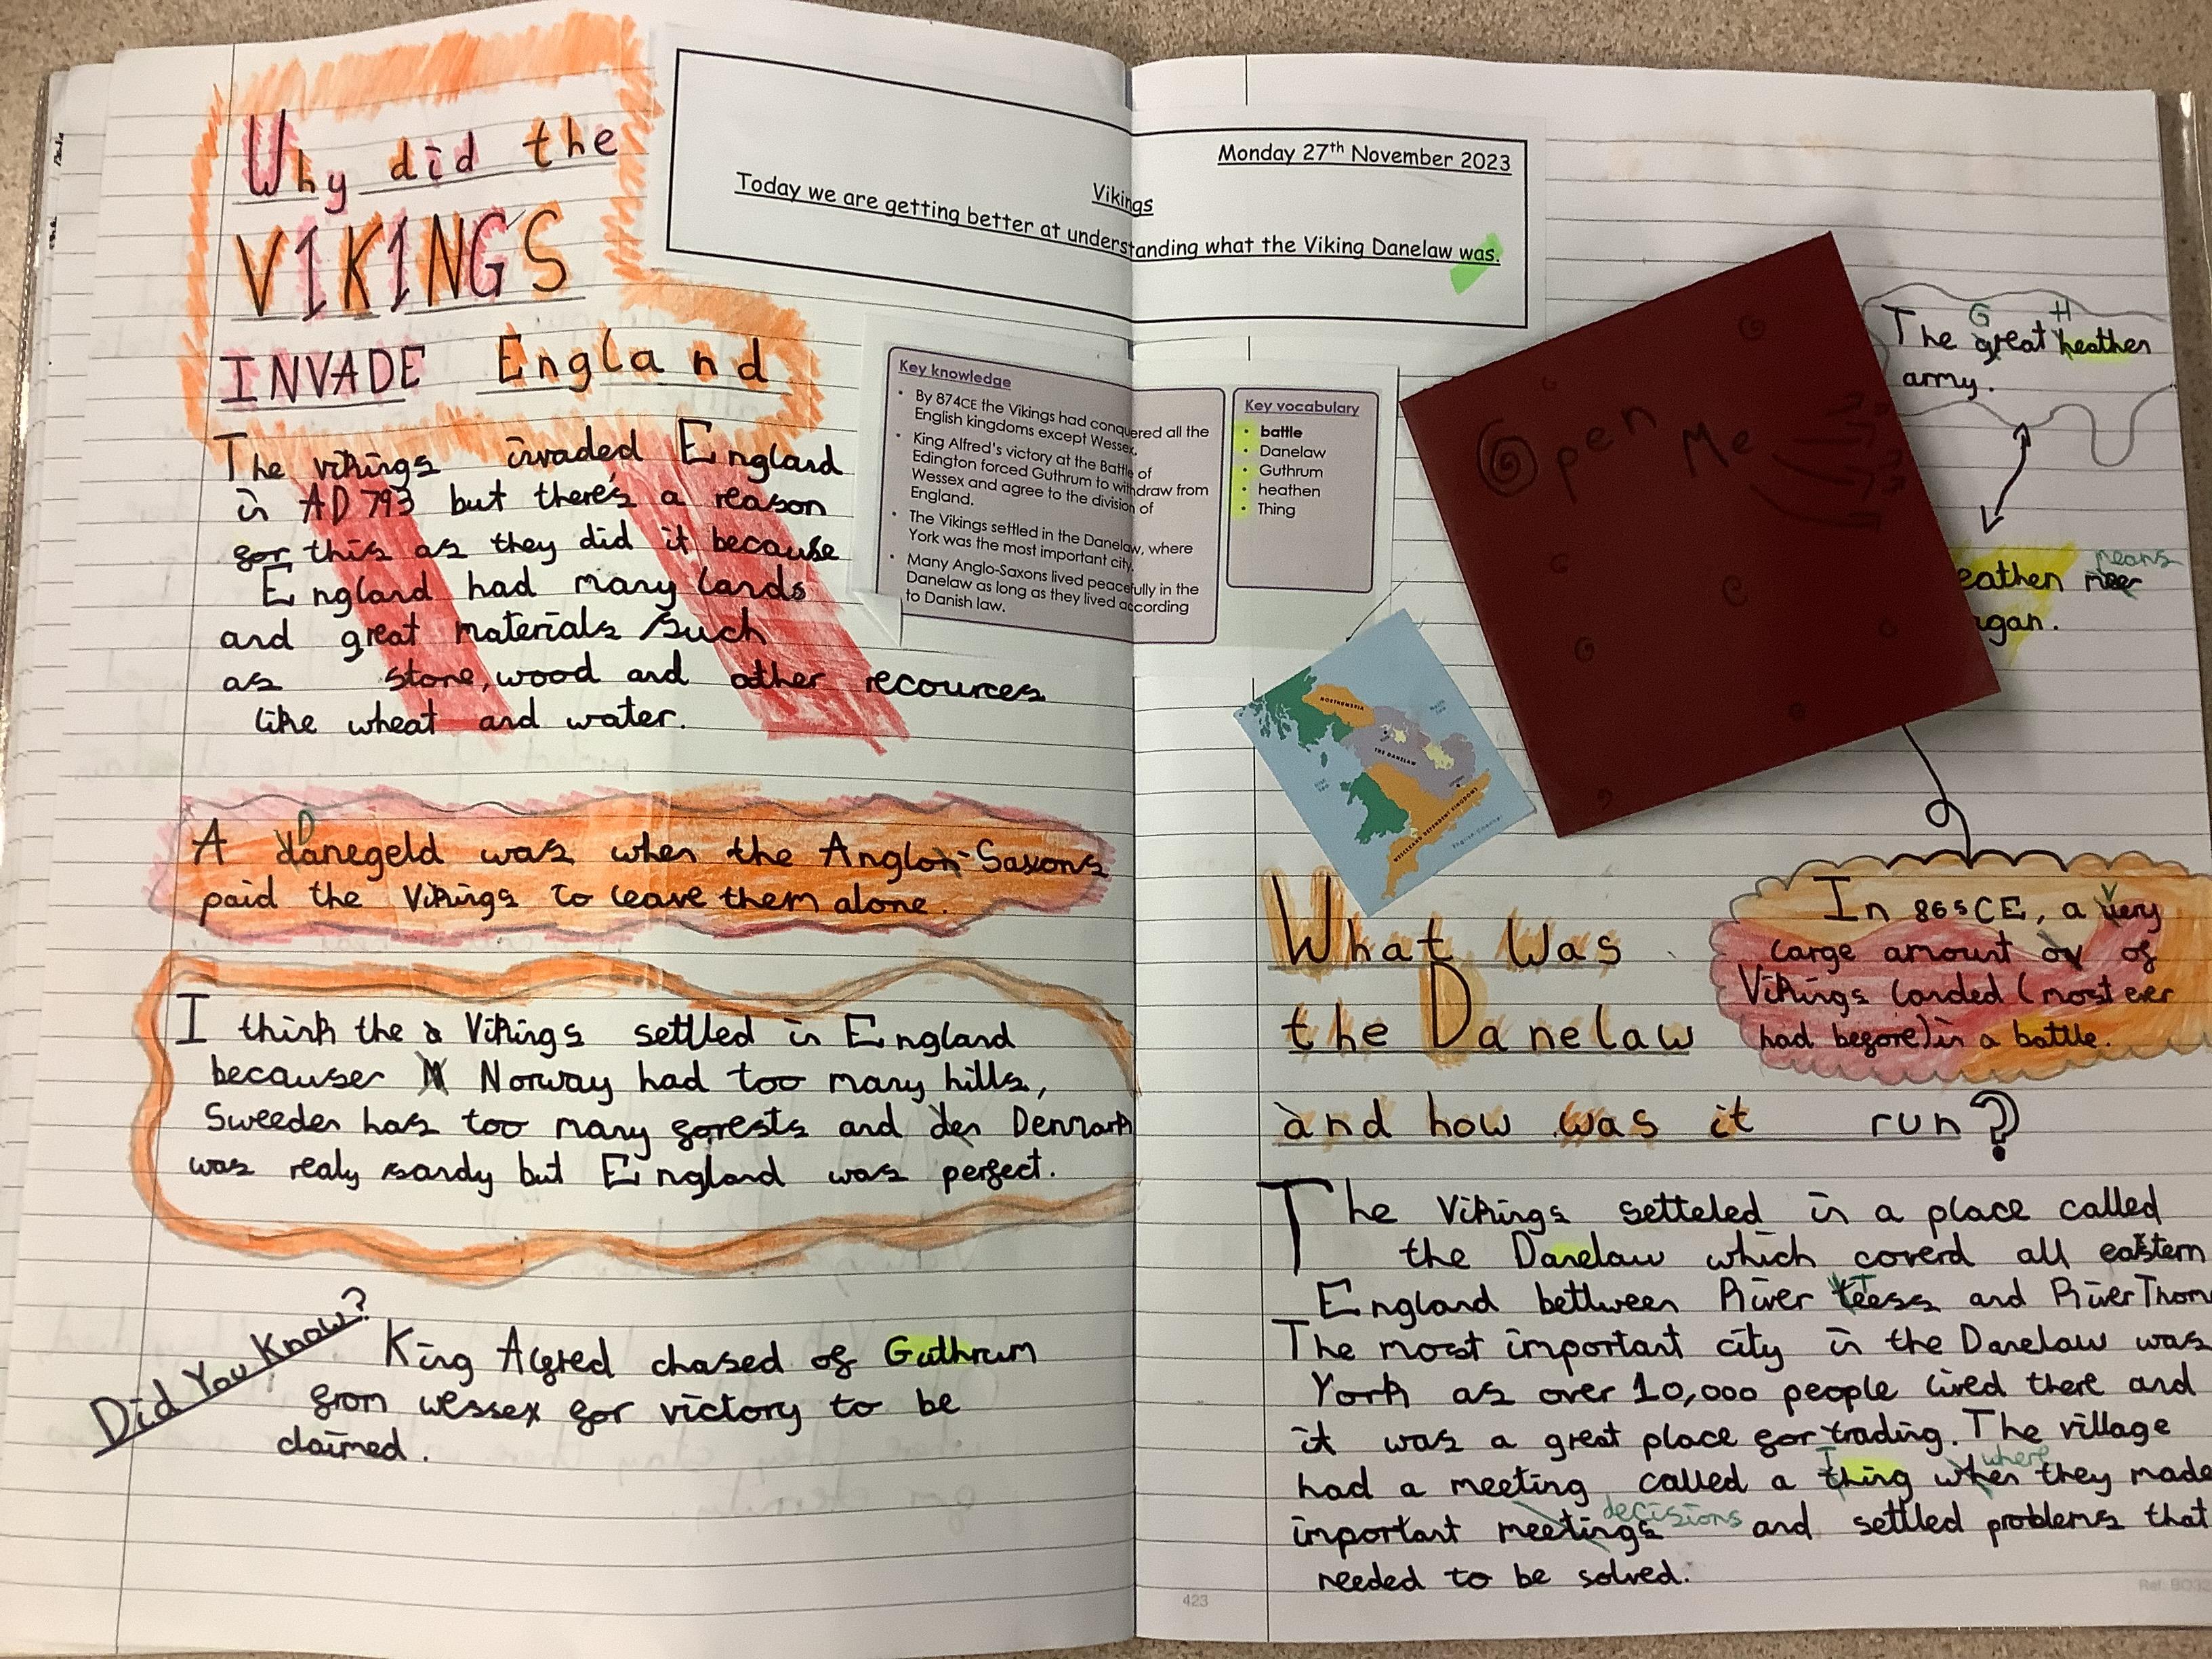 Why did the
VIKINGS
INVADE England
The vikings invaded England
in AD 793 but there's a reason
for this as they did it because
England had many lands
and great materials such
as stone, wood and other recources
like wheat and water.
A Danegeld was when the Anglo-Saxons
paid the Vikings to leave them alone.
I think the Vikings settled in England
because Norway had too many hills,
Sweeden has too many forests and Denmark
was realy sandy but England was perfect.
Did You Know?
King Alfred chased of Guthrum
from wessex for victory to be
claimed.
Monday 27th November 2023
Vikings
Today we are getting better at understanding what the Viking Danelaw was.
Key knowledge
• By 874CE the Vikings had conquered all the
English kingdoms except Wessex.
• King Alfred's victory at the Battle of
Edington forced Guthrum to withdraw from
Wessex and agree to the division of
England.
• The Vikings settled in the Danelaw, where
York was the most important city.
• Many Anglo-Saxons lived peacefully in the
Danelaw as long as they lived according
to Danish law.
Key vocabulary
• battle
• Danelaw
• Guthrum
• heathen
• Thing
Open Me
The Great Heathen
army.
eathen means
agan.
NORTHUMBRIA
THE DANELAW
WESSEX AND DEPENDENT KINGDOMS
English Channel
What Was
the Danelaw
and how was it run?
In 865CE, a very
large amount of
Vikings landed (most ever
had before) in a battle.
The Vikings setteled in a place called
the Danelaw which coverd all eastern
England bettween River Teess and River Tham
The most important city in the Danelaw was
York as over 10,000 people lived there and
it was a great place for trading. The village
had a meeting called a Thing where they made
important meetings decisions and settled problems that
needed to be solved.
423